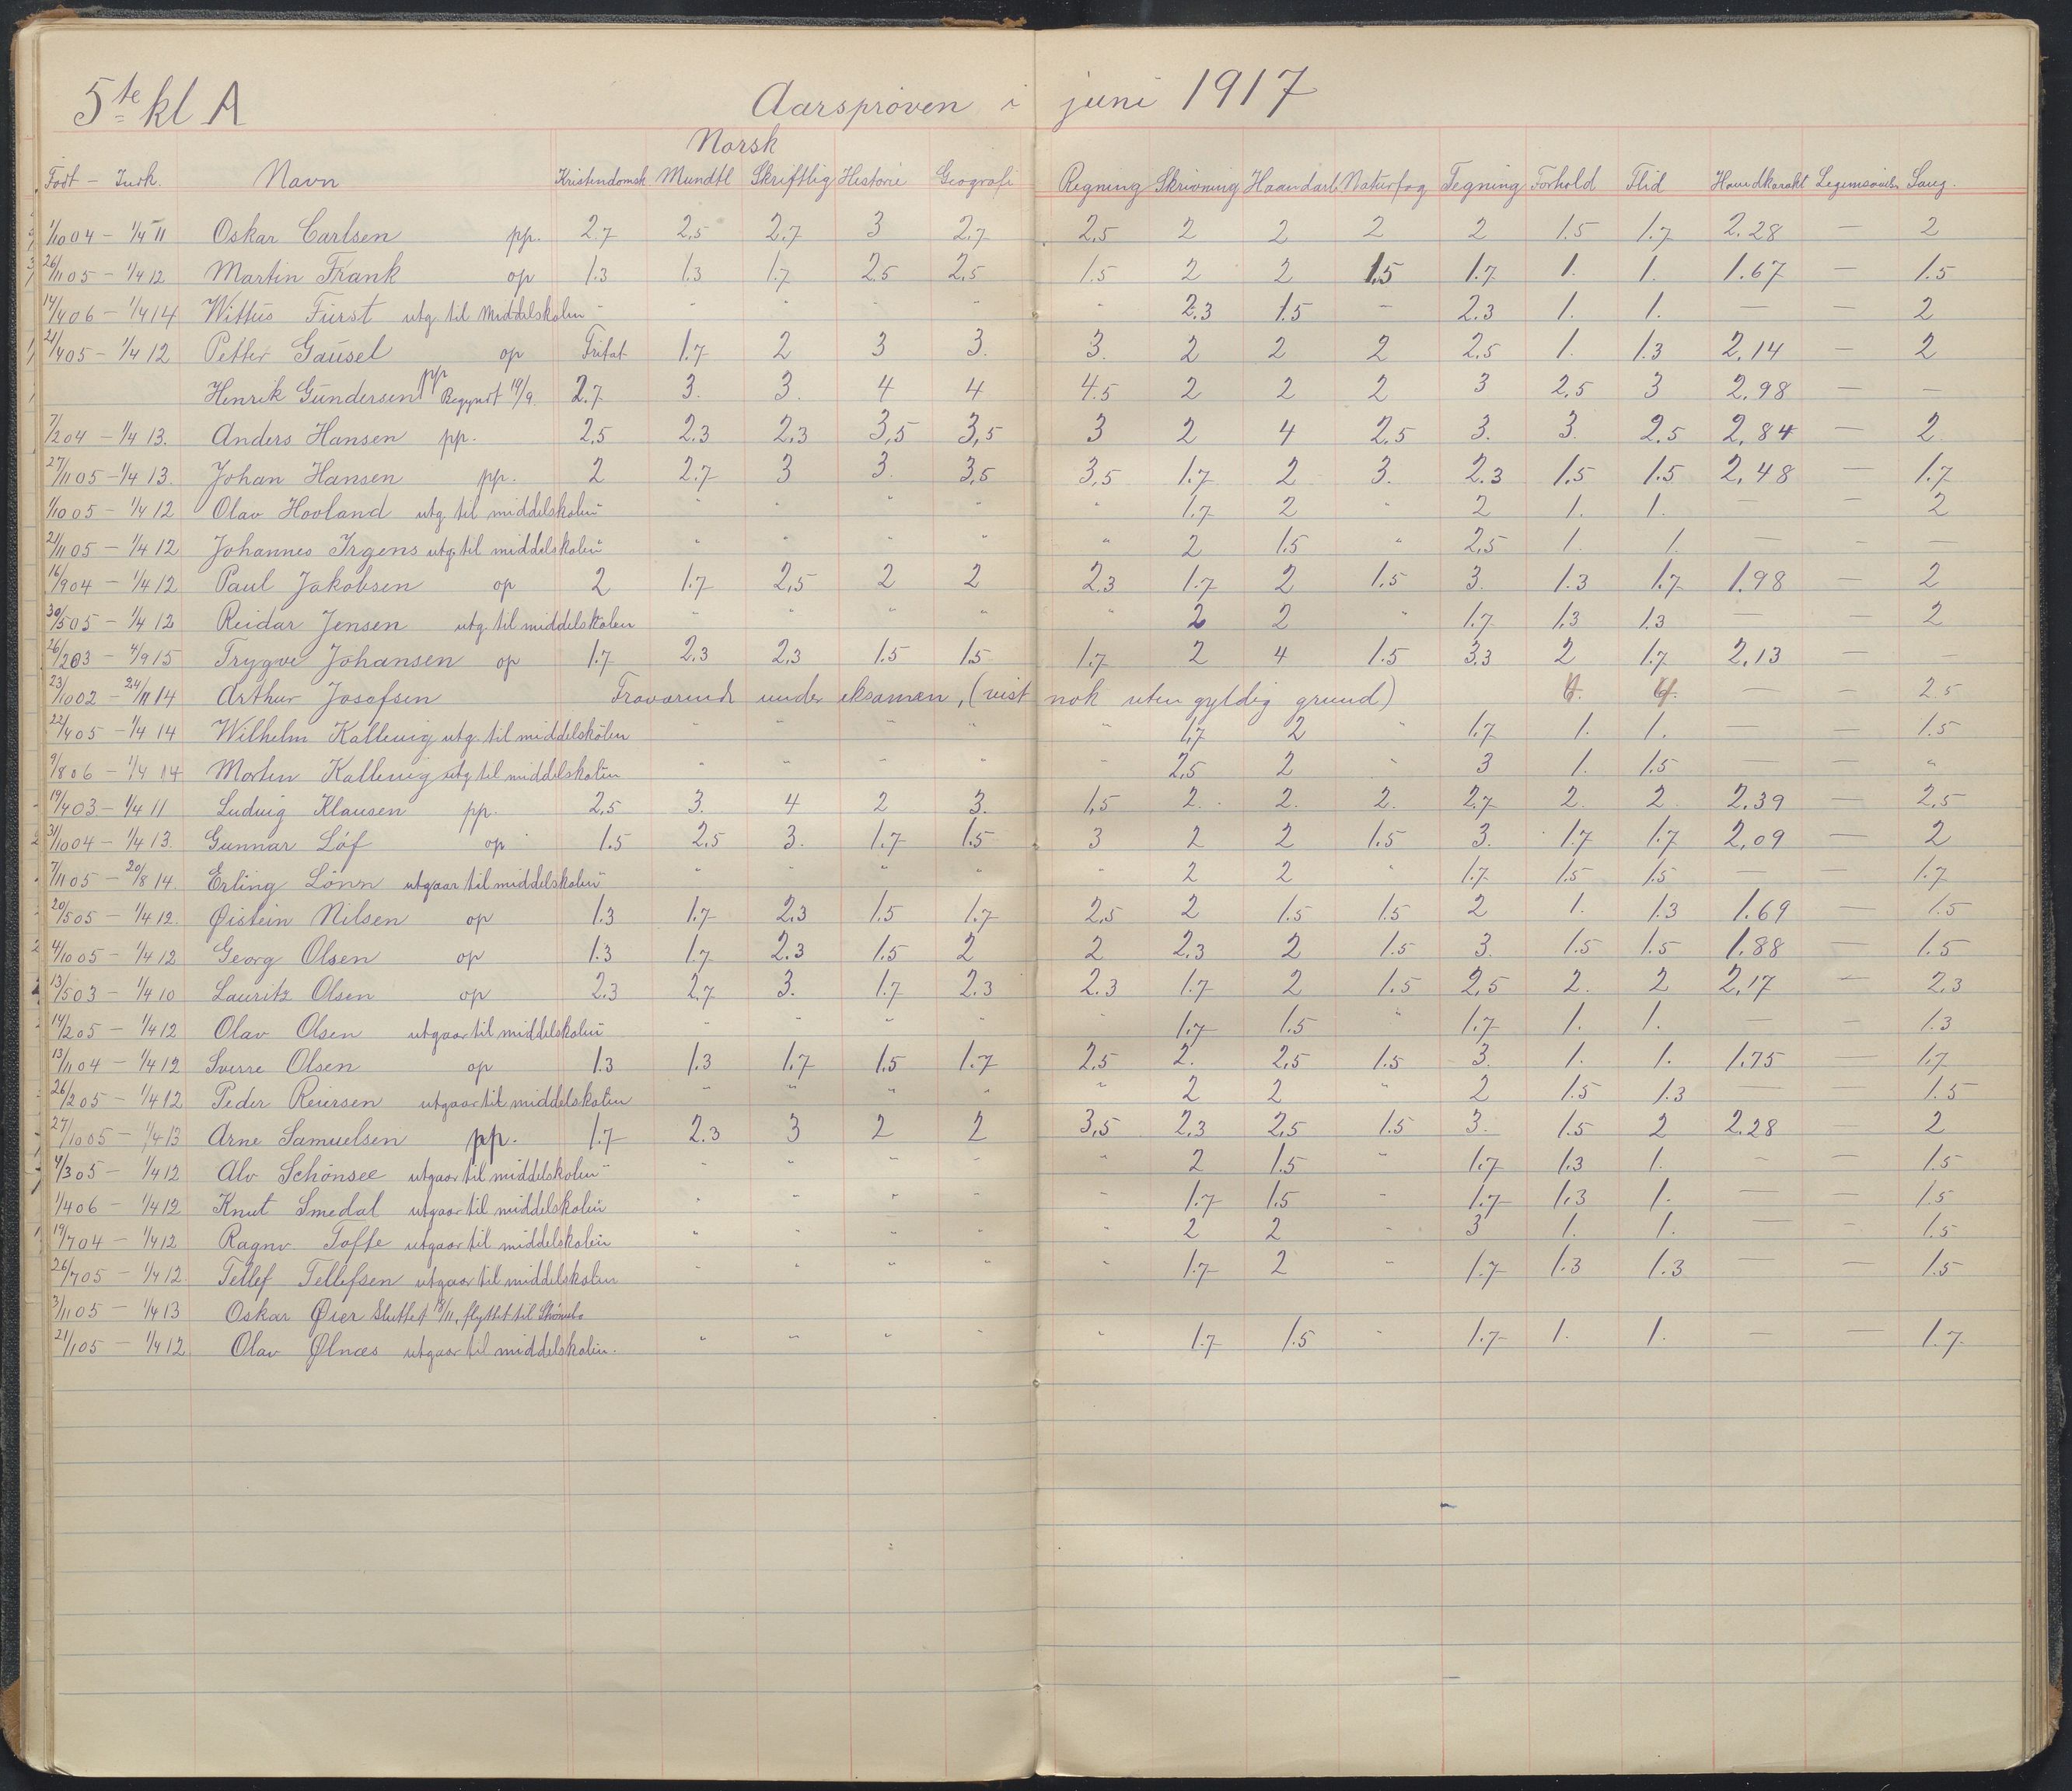 5te kl A Aarsprøven i juni 1917
Norsk
Født - Indk. Navn Kristendomsk. Mundtl Skriftlig Historie Geografi Regning Skrivning Haandarb Naturfag Tegning Forhold Flid Hovedkarakt Legemsøvels Sang.
1/10 04 - 1/4 11 Oskar Carlsen pp. 2.7 2,5 2.7 3 2,7 2,5 2 2 2 2 1.5 1.7 2.28 — 2
26/11 05 - 1/4 12 Martin Frank op 1.3 1.3 1.7 2.5 2,5 1.5 2 2 1.5 1.7 1. 1. 1.67 — 1.5
14/4 06 - 1/4 14 Wittus Fürst utg. til Middelskolen - " " " " " 2.3 1.5 - 2.3 1. 1. — — 2
21/4 05 - 1/4 12 Petter Gausel op Fritat 1.7 2 3 3. 3. 2 2 2 2,5 1. 1.3 2,14 — 2
Henrik Gundersen pp Begyndt 19/9 2.7 3. 3. 4 4 4.5 2 2 2 3 2,5 3 2,98 — —
7/2 04 - 1/4 13. Anders Hansen pp. 2,5 2.3 2.3 3,5 3,5 3 2 4 2,5 3. 3. 2.5 2,84 — 2
27/11 05 - 1/4 13. Johan Hansen pp. 2 2.7 3 3. 3,5 3,5 1.7 2 3. 2.3 1.5 1.5 2,48 — 1.7
1/10 05 - 1/4 12 Olav Hovland utg. til middelskolen " " " " " 1.7 2 " 2 1. 1. — — 2
21/11 05 - 1/4 12 Johannes Irgens utg. til middelskolen " " " " " 2 1.5 " 2,5 1. 1. — — —
16/9 04 - 1/4 12 Paul Jakobsen op 2 1.7 2,5 2 2 2.3 1.7 2 1.5 3. 1.3 1.7 1.98 — 2
30/5 05 - 1/4 12 Reidar Jensen utg. til middelskolen " " " " " 2 2 " 1.7 1.3 1.3 — — 2
26/2 03 - 4/9 15 Trygve Johansen op 1.7 2.3 2,3 1.5 1.5 1.7 2 4 1.5 3.3 2 1.7 2,13 — —
23/10 02 - 24/11 14 Arthur Josefsen Fraværende under eksamen, (vist nok uten gyldig grund) — — 2.5
22/4 05 - 1/4 14 Wilhelm Kallevig utg. til middelskolen " " " " " 1,7 2 " 1.7 1. 1. — — 1.5
9/8 06 - 1/4 14 Morten Kallevig utg til middelskolen " " " " " 2,5 2 " 3 1. 1.5 — — "
19/4 03 - 1/4 11 Ludvig Klausen pp. 2,5 3. 4 2 3. 1,5 2. 2. 2. 2.7 2. 2. 2,39 — 2,5
31/10 04 - 1/4 13. Gunnar Löf op 1.5 2,5 3. 1.7 1.5 3 2 2 1.5 3. 1.7 1.7 2,09 — 2
7/11 05 - 20/8 14. Erling Lönn utgaar til middelskolen " " " " " 2 2 " 1.7 1.5 1.5 — — 1.7
20/5 05 - 1/4 12. Øistein Nilsen op 1.3 1.7 2.3 1.5 1.7 2,5 2 1.5 1.5 2 1. 1.3 1.69 — 1.5
4/10 05 - 1/4 12 Georg Olsen op 1.3 1.7 2.3 1.5 2 2 2,3 2 1.5 3. 1.5 1.5 1,88 — 1.5
13/5 03 - 1/4 10 Lauritz Olsen op 2.3 2,7 3. 1.7 2.3 2.3 1.7 2 1.5 2,5 2. 2 2,17 — 2,3
14/2 05 - 1/4 12 Olav Olsen utgaar til middelskolen " " " " " 1.7 1.5 " 1.7 1. 1. — — 1.3
13/11 04 - 1/4 12 Sverre Olsen op 1.3 1.3 1.7 1.5 1.7 2,5 2. 2,5 1.5 3. 1. 1. 1.75 — 1.7
26/2 05 - 1/4 12 Peder Reiersen utgaar til middelskolen " " " " " 2 2 " 2 1.5 1.3 — — 1.5
27/10 05 - 1/4 13 Arne Samuelsen pp. 1.7 2.3 3 2 2 3,5 2,3 2,5 1.5 3. 1.5 2 2,28 — 2
4/3 05 - 1/4 12 Alv Schönsee utgaar til middelskolen " " " " " 2 1.5 " 1.7 1.3 1. - — 1.5
1/4 06 - 1/4 12 Knut Smedal utgaar til middelskolen " " " " " 1.7 1,5 - 1.7 1,3 1. — — 1.5
19/7 04 - 1/4 12 Ragnv. Toffe utgaar til middelskolen " " " " " 2 2 - 3 1. 1. — — 1.5
26/7 05 - 1/4 12 Tellef Tellefsen utgaar til middelskolen " " " " " 1.7 2 " 1.7 1.3 1.3 — — 1.5
3/11 05 - 1/4 13 Oskar Øier Sluttet 18/11, flyttet til
21/1 05 - 1/4 12 Olav Ølnæs utgaar til middelskolen. " " " " " 1.7 1.5 " 1.7 1. 1. — — 1.7